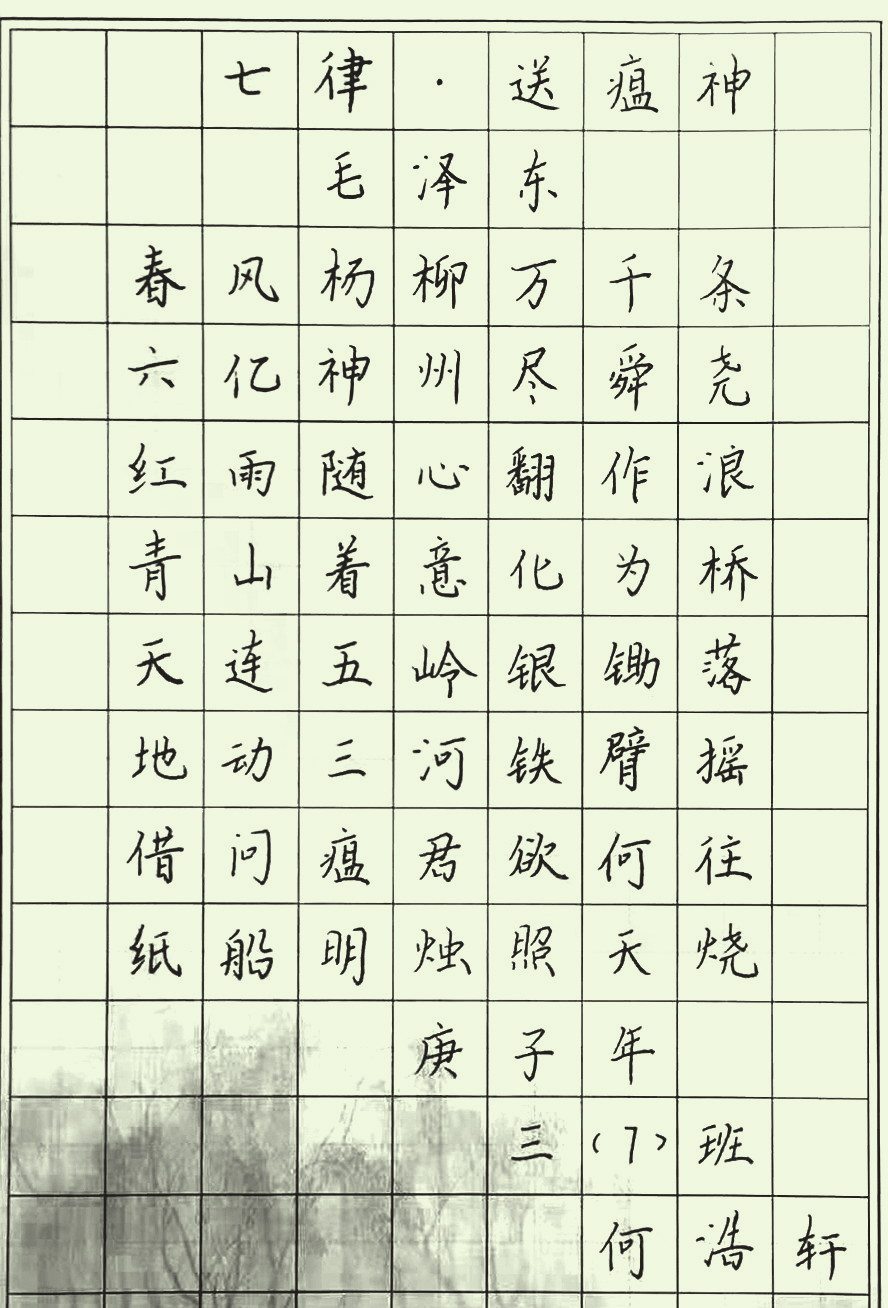 七律·送瘟神
毛泽东
春风杨柳万千条
六亿神州尽舜尧
红雨随心翻作浪
青山着意化为桥
天连五岭银锄落
地动三河铁臂摇
借问瘟君欲何往
纸船明烛照天烧
庚子年
三(7)班
何浩轩